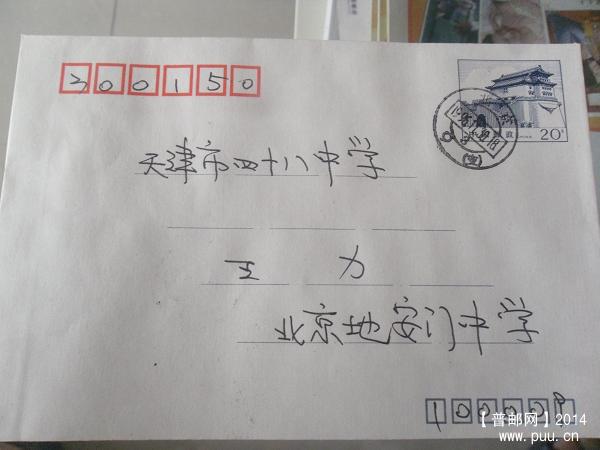 300150
中国邮政
20分
天津市四十八中学
王 力
北京地安门中学
100009
【普邮网】2014
www.puu.cn